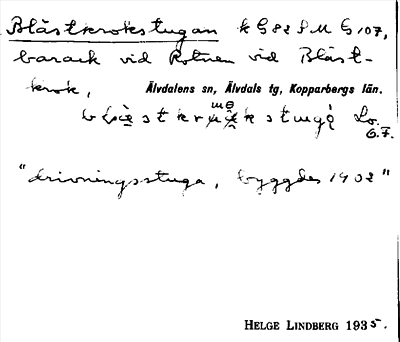 Blästkrokstugan k G 82 S M G 107,
barack vid Rotnen vid Bläst-
krok, Älvdalens sn, Älvdals tg, Kopparbergs län.
Lo.
G.F.
"drivningsstuga, byggdes 1902"
HELGE LINDBERG 1935.